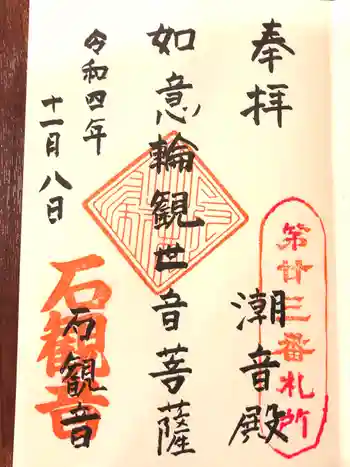 奉拝
潮音殿
第廿三番札所
如意輪観世音菩薩
令和四年
十一月八日
石観音
石観音